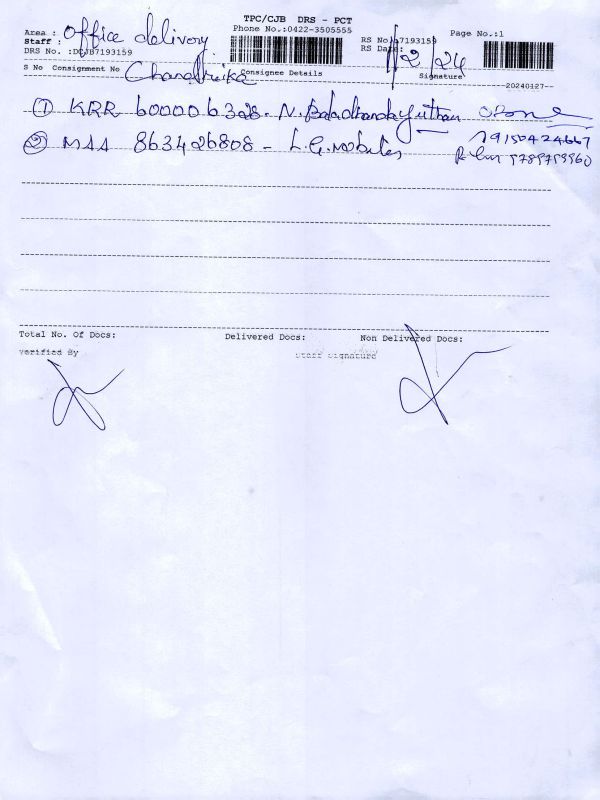 TPC/CJB DRS - PCT
Area : Office delivery Phone No.:0422-3505555 Page No.:1
Staff : RS No
DRS No. : RS Date: 1/2/24
Chandrika
S No Consignment No Consignee Details Signature
20240127--
① KRR 600006328 - N.
② MSS 863426808 - L.G. mobiles 9150424667
9789759960
Total No. Of Docs: Delivered Docs: Non Delivered Docs:
Verified By Staff Signature